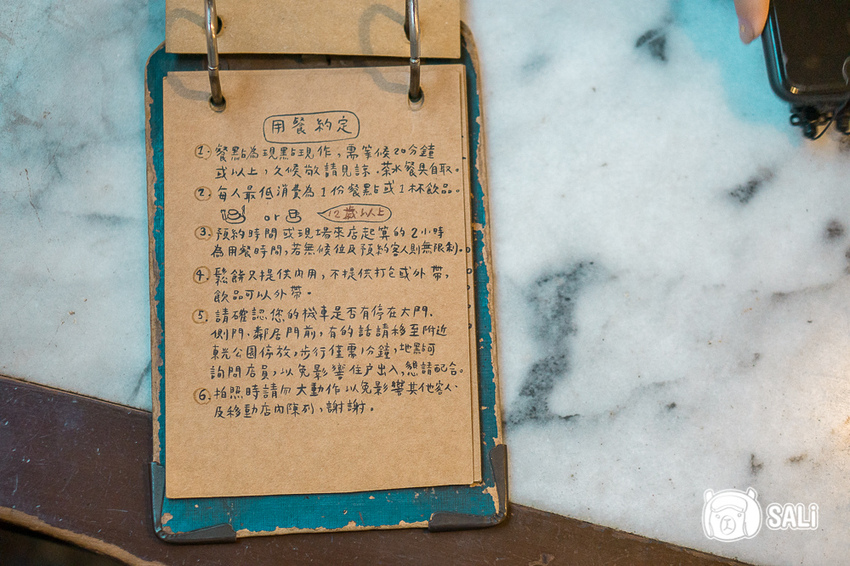 用餐約定
1. 餐點為現點現作，需等候20分鐘
或以上，久候敬請見諒．茶水餐具自取。
2. 每人最低消費為1份餐點或1杯飲品。
or 12歲以上
3. 預約時間或現場來店起算的2小時
為用餐時間，若無候位及預約客人則無限制。
4. 鬆餅只提供內用，不提供打包或外帶，
飲品可以外帶。
5. 請確認您的機車是否有停在大門、
側門、鄰居門前，有的話請移至附近
東光公園停放，步行僅需1分鐘，地點可
詢問店員，以免影響住戶出入，懇請配合。
6. 拍照時請勿大動作以免影響其他客人、
及移動店內陳列，謝謝。
SALi